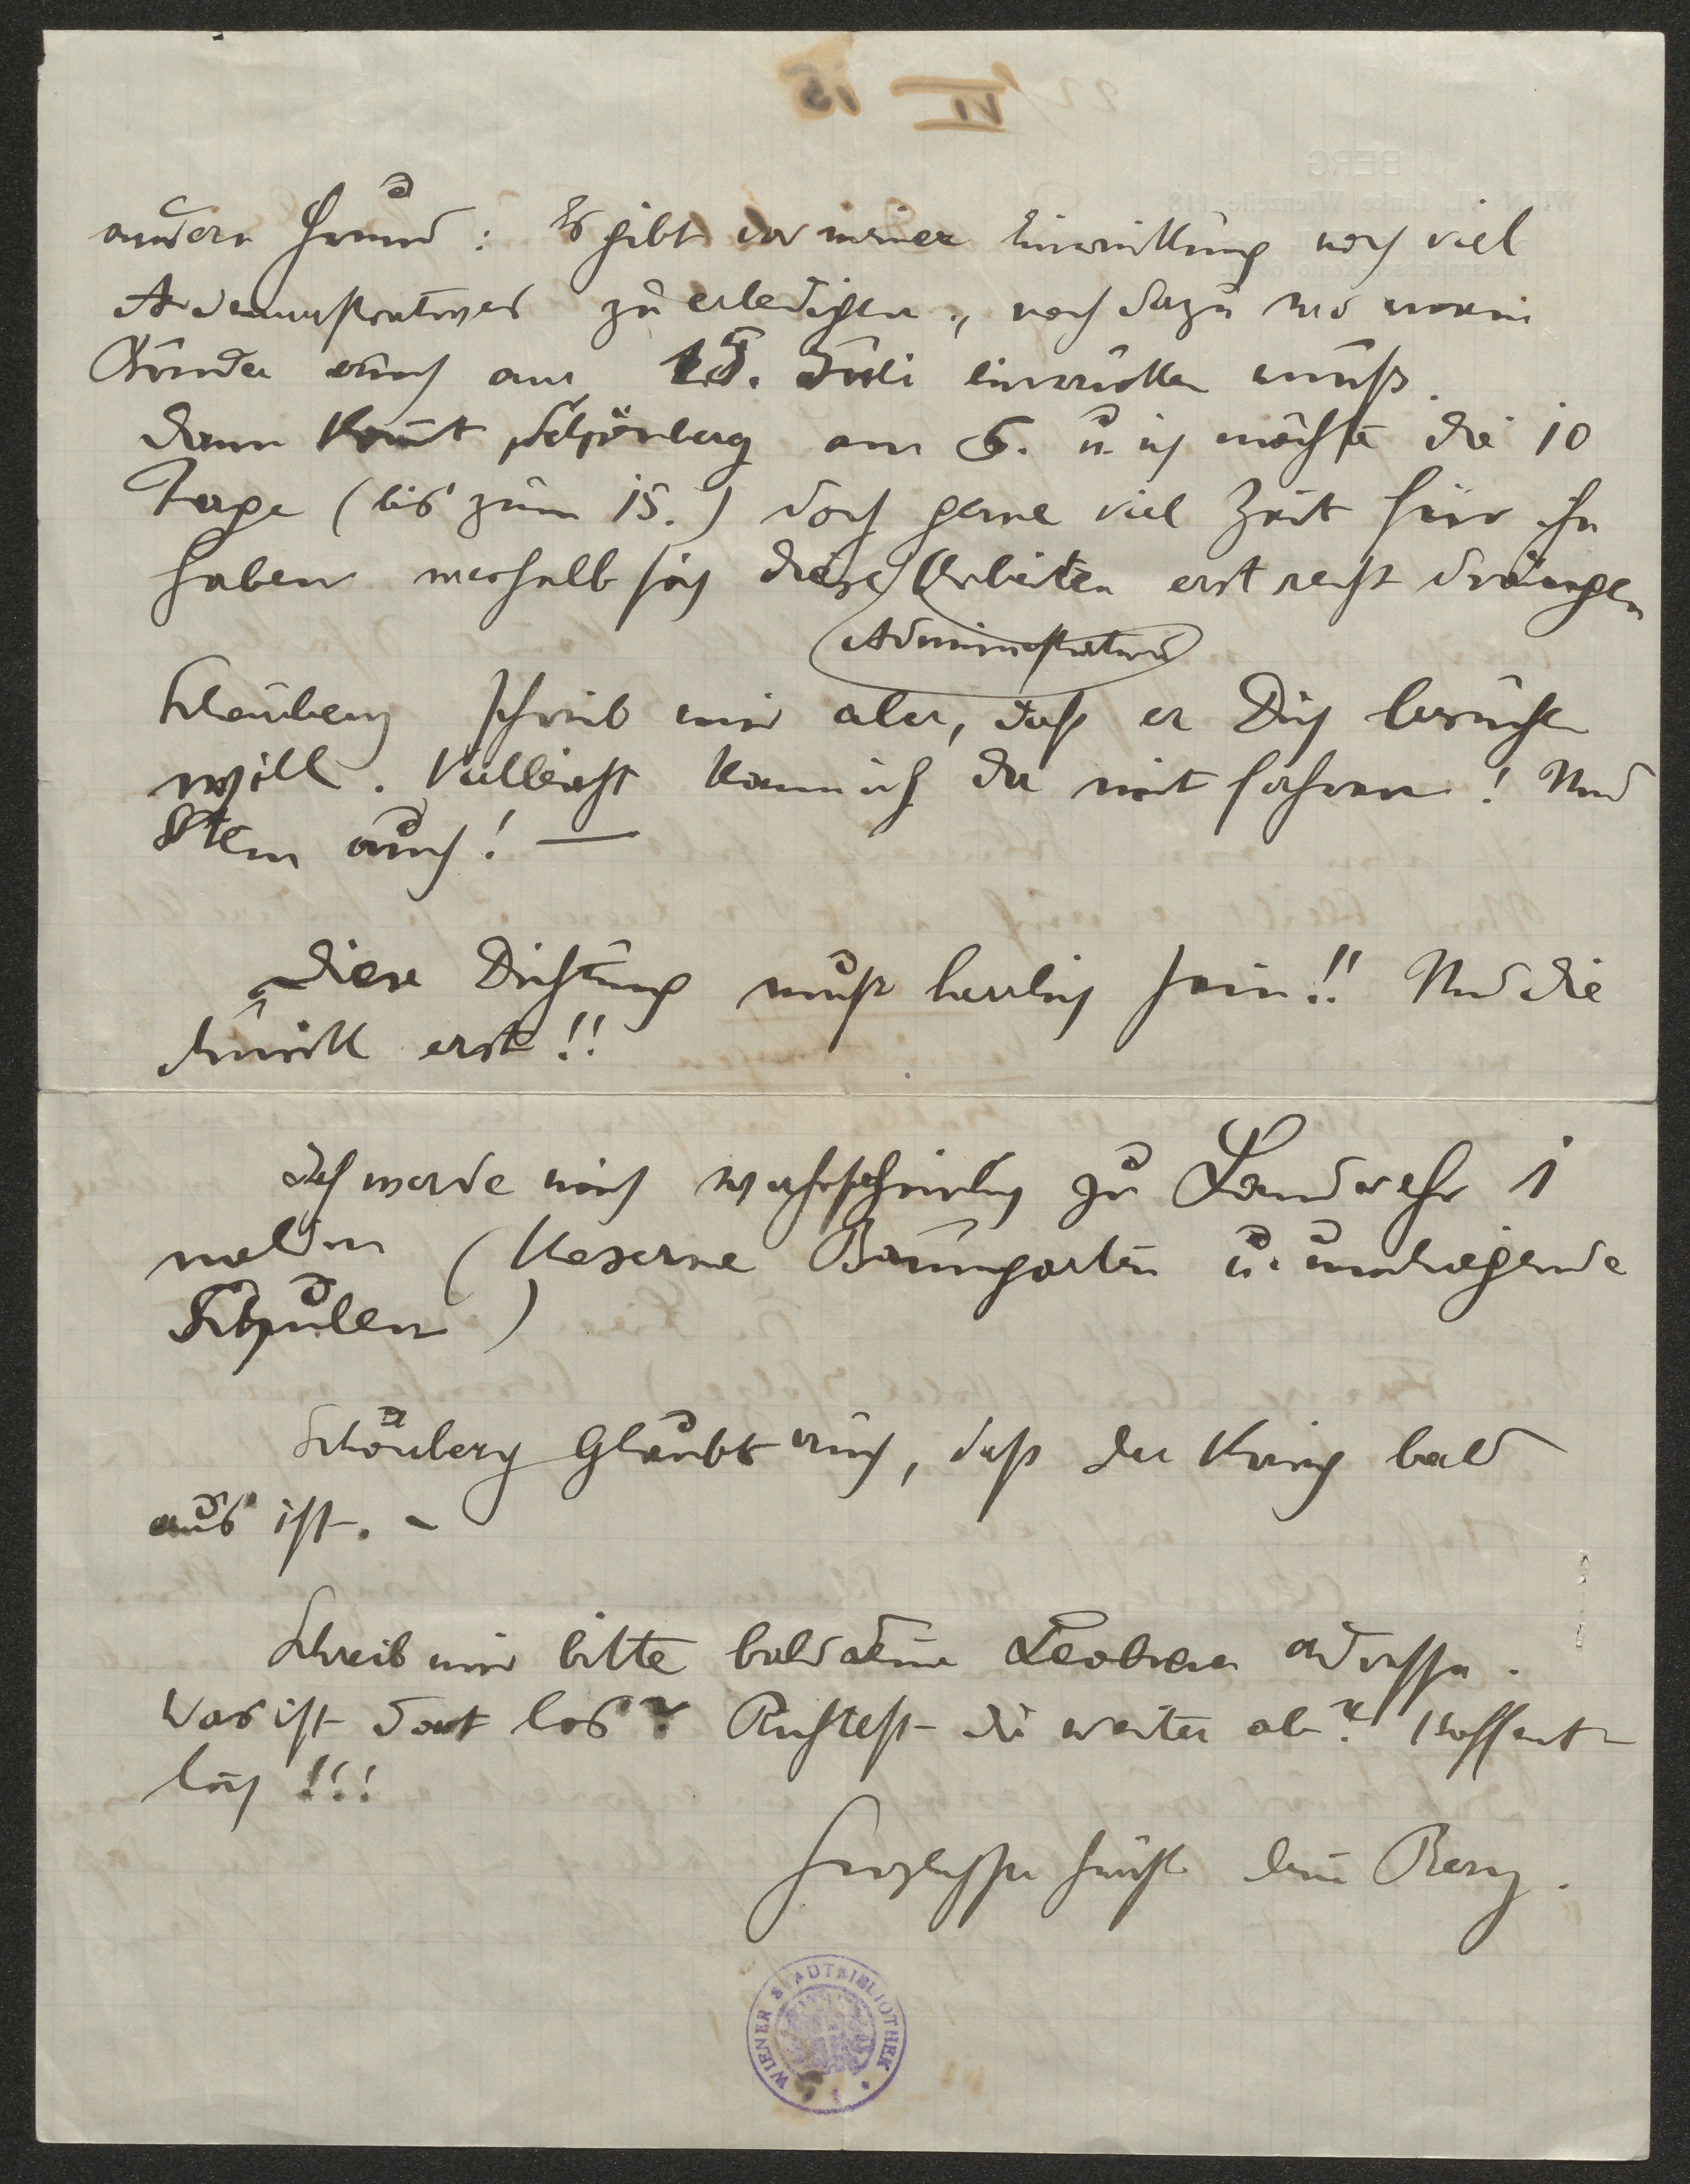 andern Grund: Es gibt vor meiner Einrückung noch viel
Administratives zu erledigen, noch dazu wo mein
Bruder auch am 15. Juli einrücken muß.
Dann kom̅t Schönberg am 5. u. ich möchte die 10
Tage (bis zum 15.) doch gerne viel Zeit für ihn
haben weshalb sich diese Arbeiten erst recht drängen
Administrativ
Schönberg schrieb mir aber, daß er Dich besuchen
will. Vielleicht kann ich da mit fahren! Und
Stein auch! —
Diese Dichtung muß herrlich sein!! Und die
Musik erst!!
Ich werde mich wahrscheinlich zu Landwehr 1
melden (Kaserne Baumgarten u. umliegende
Schulen)
Schönberg glaubt auch, daß der Krieg bald
aus ist. –
Schreib mir bitte bald deine Leobner Adresse.
Was ist dort los? Richtest du weiter ab? Hoffent-
lich!!!
Herzlichste Grüße dein Berg.
WIENER STADTBIBLIOTHEK